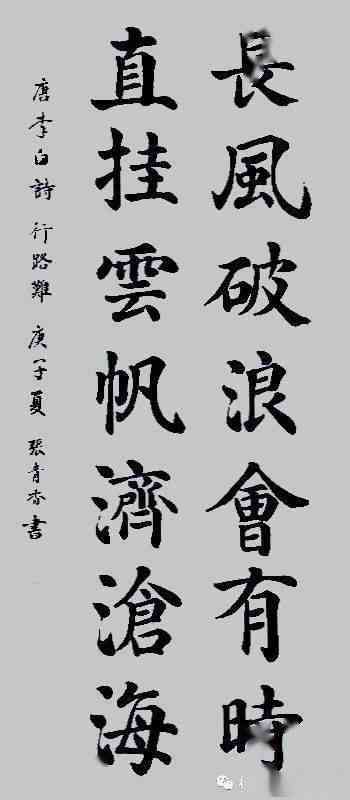 長風破浪會有時
直挂雲帆濟滄海
唐李白詩行路難庚子夏張青杏書